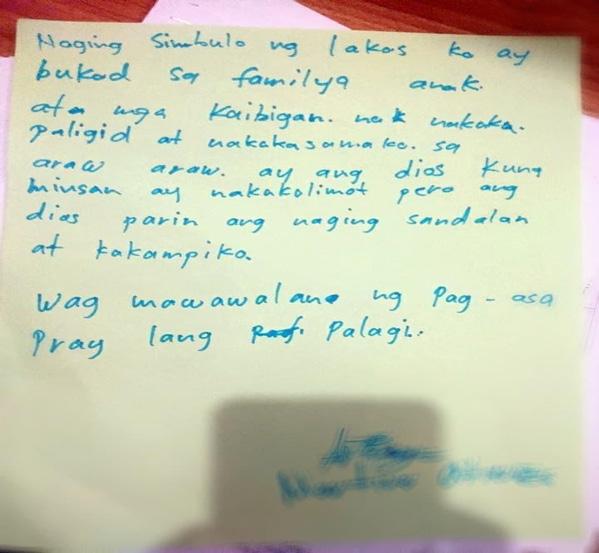 Naging Simbulo ng lakas ko ay
bukod sa familya anak.
ata mga kaibigan. na k nakaka.
paligid at nakakasama ko. sa
araw araw. ay ang dios kung
minsan ay nakakalimot pero ang
dios parin ang naging sandalan
at kakampiko.
Wag mawawalang ng Pag-asa
Pray lang Palagi.